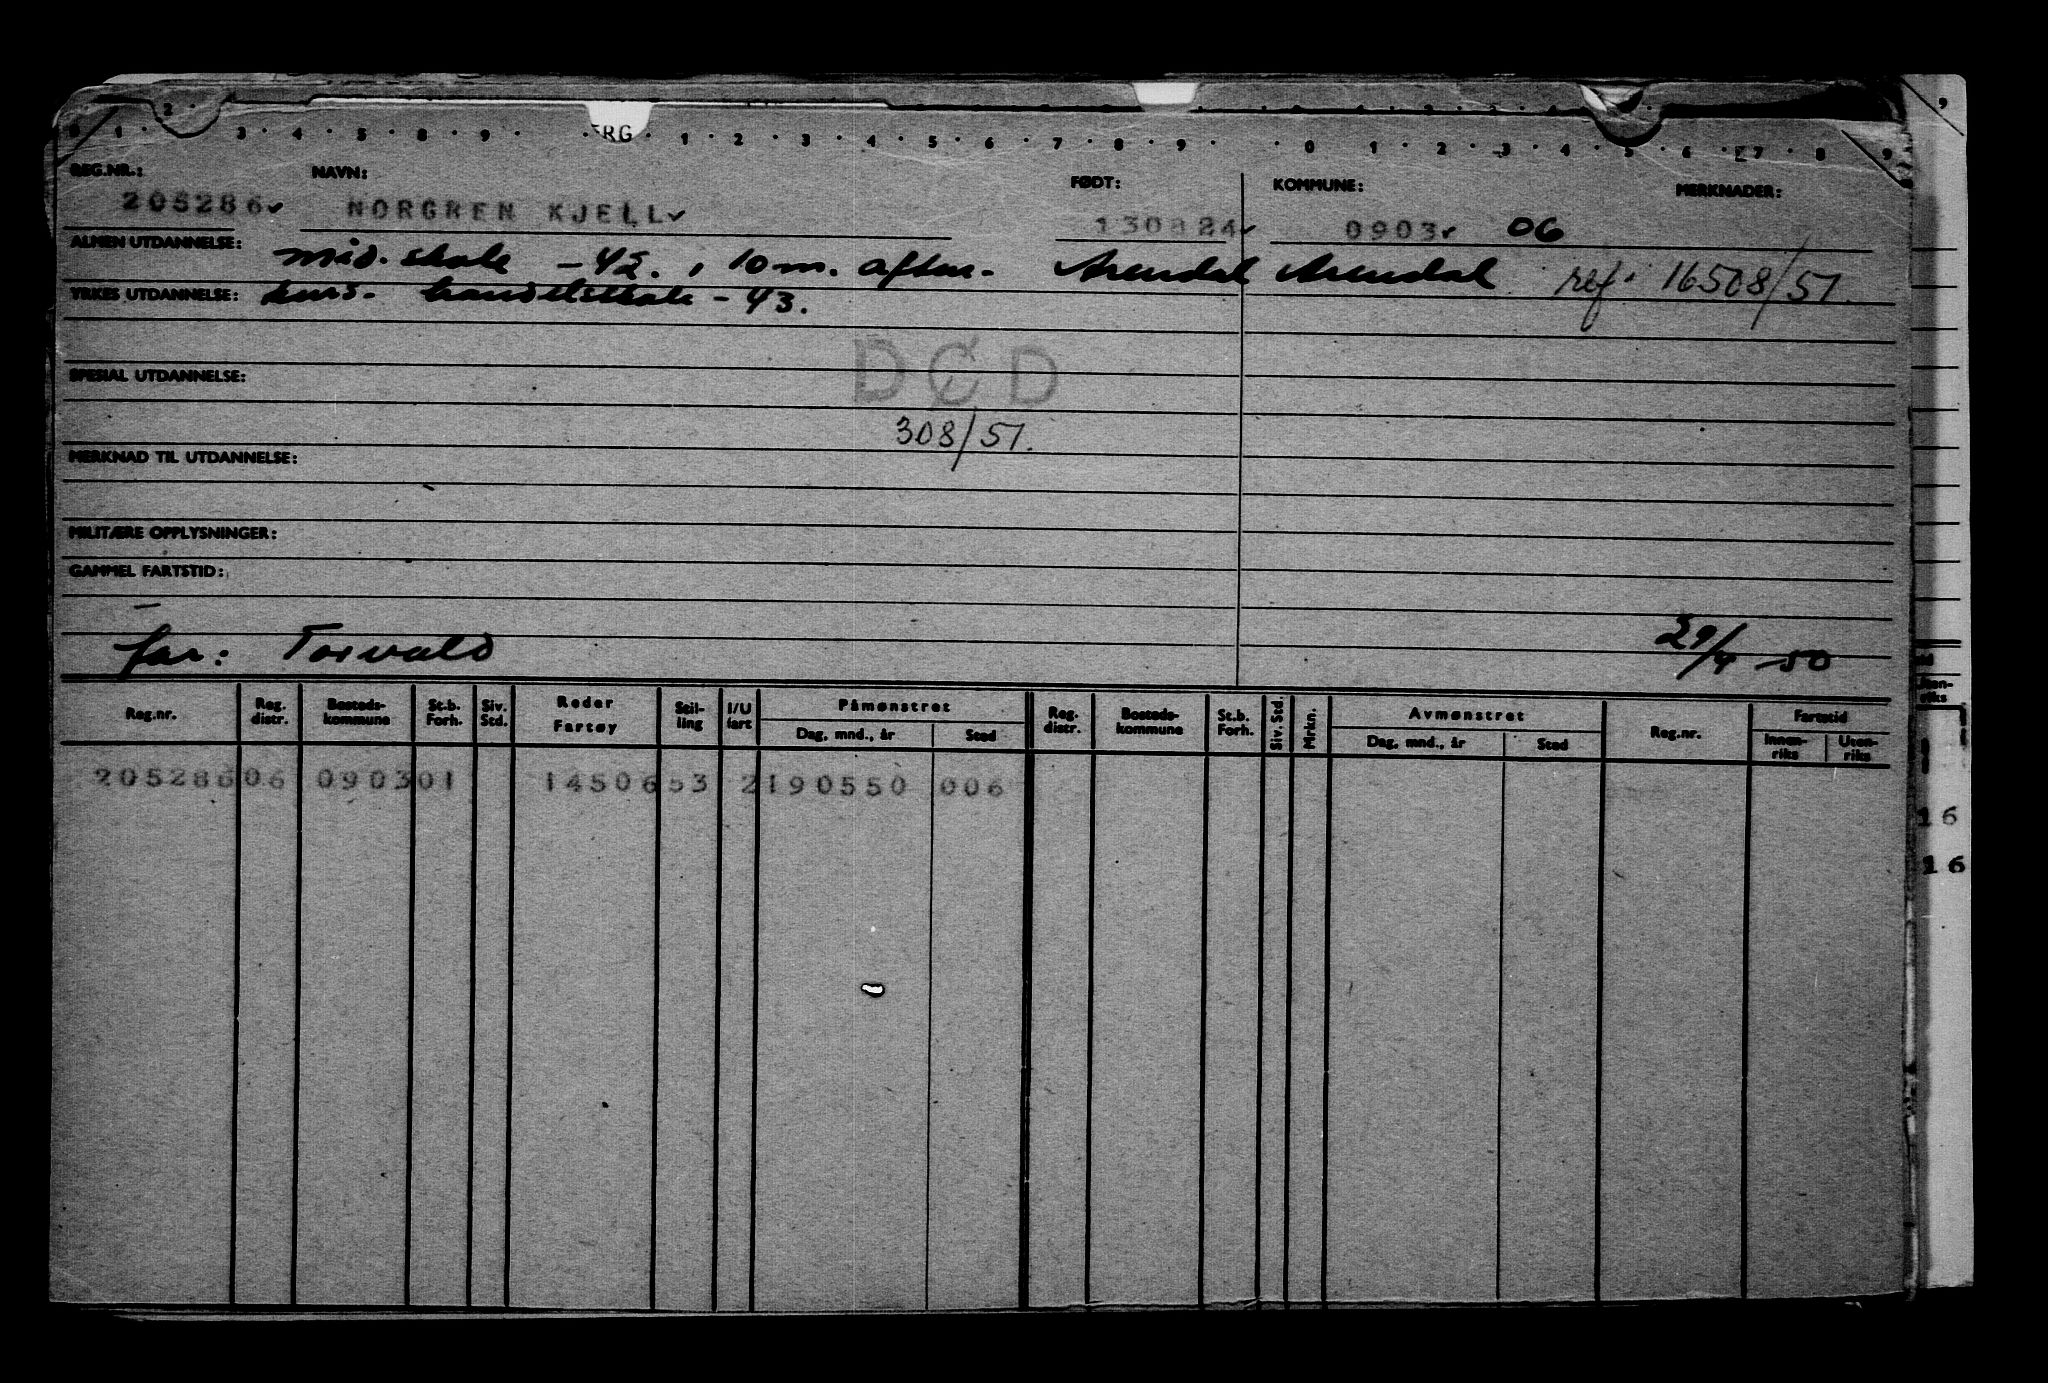 2
3 4 5 8 9 ERG 1 2 3 4 5 6 7 8 9 0 1 2 3 4 5 6 7 8 9
9
REG.NR.: NAVN: FØDT: KOMMUNE: MERKNADER:
205286 NORGREN KJELL 130824 0903 06
ALMEN UTDANNELSE: mid. skole -42., 10 m. aften- Arendal Arendal ref. 16508/51.
YRKES UTDANNELSE: kurs. handelsskole - 43.
DØD
SPESIAL UTDANNELSE:
308/51.
MERKNAD TIL UTDANNELSE:
MILITÆRE OPPLYSNINGER:
GAMMEL FARTSTID:
—
far: Torvald 29/4 -50
Reg.nr. Reg. distr. Bosteds-kommune St.b. Forh. Siv. Std. Reder Fartøy Stil-ling I/U fart Påmønstret Dag, mnd., år Sted Reg. distr. Bosteds-kommune St.b. Forh. Siv. Std. Mrkn. Avmønstret Dag, mnd., år Sted Reg.nr. Fartstid Innen-riks Uten-riks
205286 06 0903 01 14506 53 2 190550 006
16
16